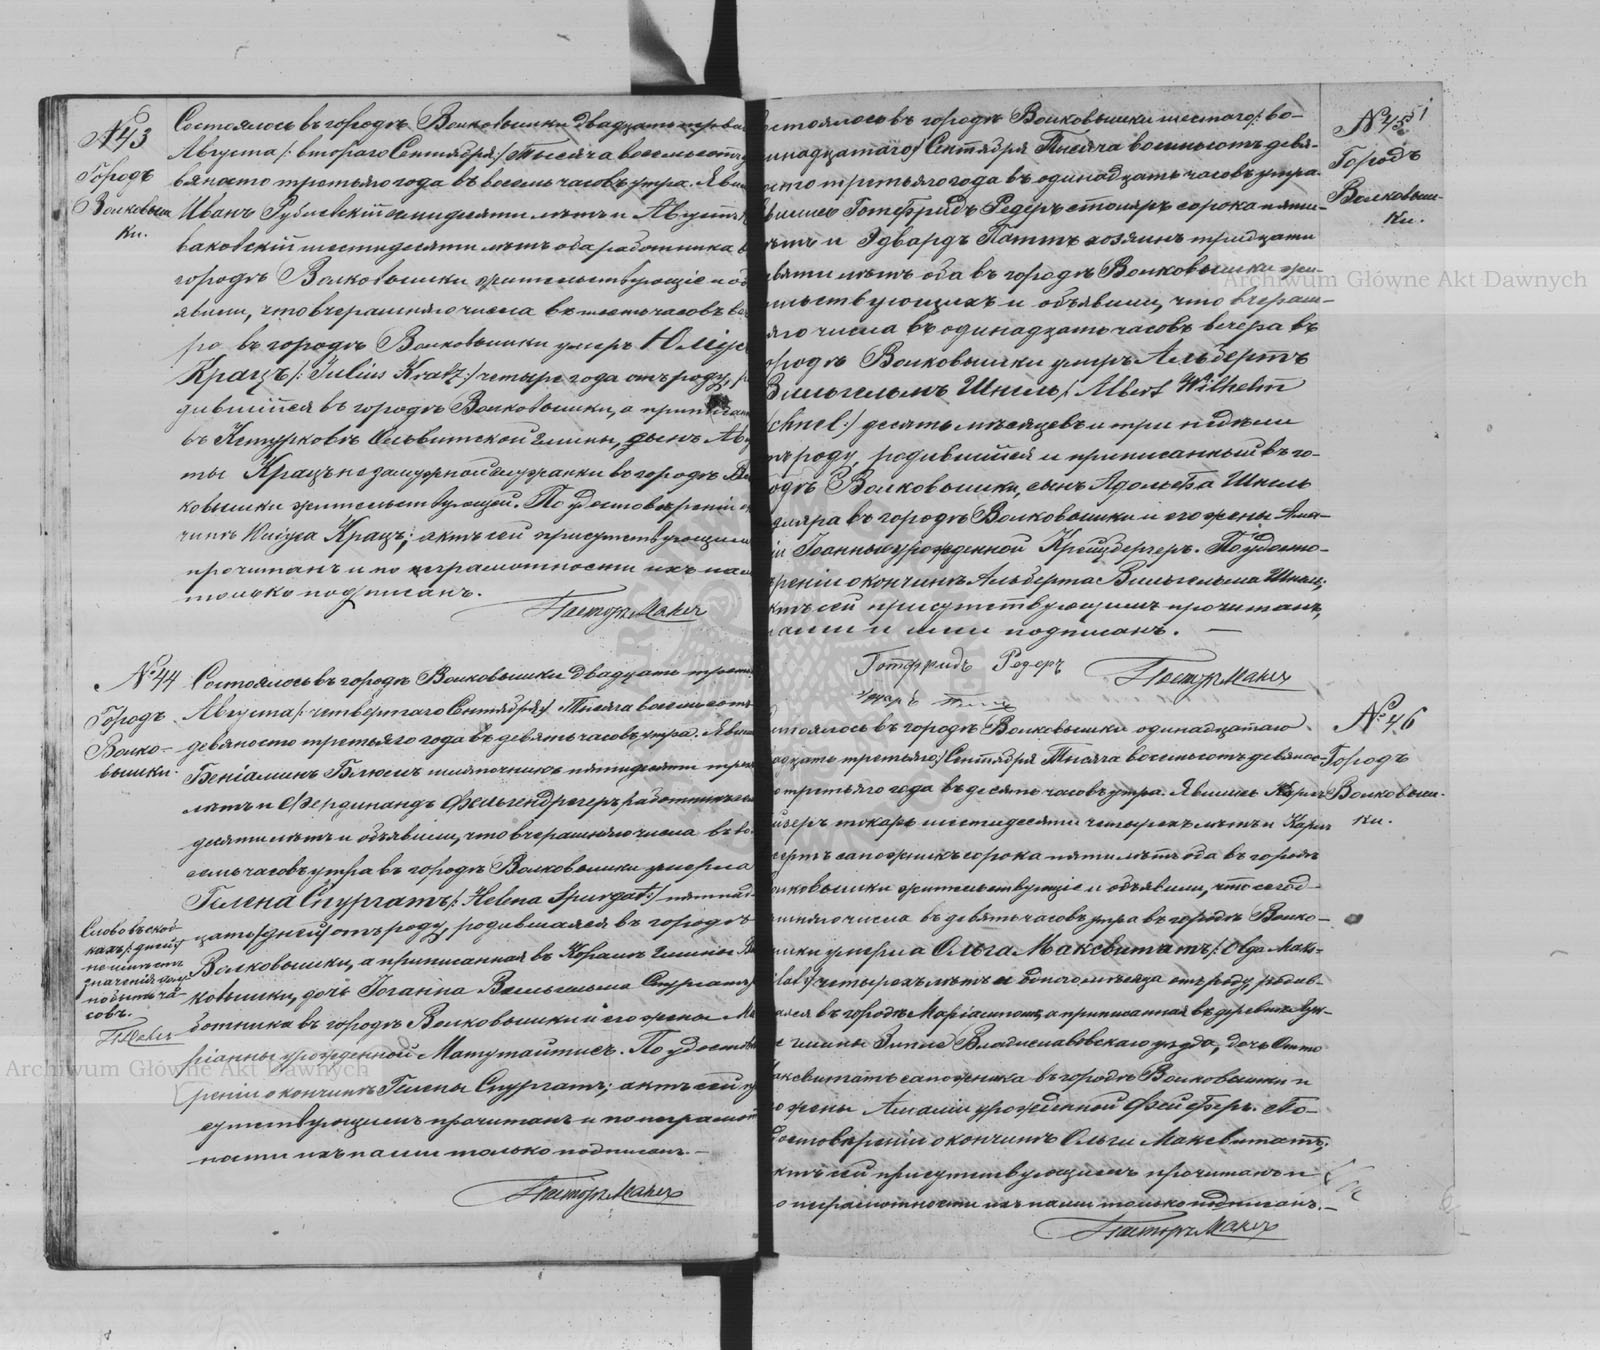 №43
Городъ
Волковыш
ки.
Состоялось въ городѣ Волковышки двадцать перва
Августа /: втораго Сентября :/ тысяча восемьсотъ
вяносто третьяго года въ восемь часовъ утра. Яви
Иванъ лѣтъ и Августъ
баковскій шестидесяти лѣтъ оба работника в
городѣ Волковышки жительствующіе и об
явили, что вчерашняго числа въ шесть часовъ ве
ра въ городѣ Волковышки умеръ Юлiус
Крацъ /: Julius Kratz :/ четыре года отъ роду, р
дившійся въ городѣ Волковышки, а приписан
въ Кетурковѣ Ольвитской гмины, сынъ Авгу
ты Крацъ незамужной служанки въ городѣ Во
ковышки жительствующей. По удостовѣреніи о
чинѣ Юліуса Крацъ; актъ сей присутствующимъ
прочитанъ и по неграмотности ихъ нам
только подписанъ.
Пасторъ Махъ
№44
Городъ
Волко-
вышки.
Состоялось въ городѣ Волковышки двадцать треть
Августа /: четвертаго Сентября :/ Тысяча восемьсотъ
девяносто третьяго года въ девять часовъ утра. Яви
Беніаминъ Блюмъ шляпочникъ пятидесяти трех
лѣтъ и Фердинандъ работникъ
десяти лѣтъ и объявили, что вчерашняго числа въ во
семь часовъ утра въ городѣ Волковышки умерла
Гелена Спургатъ /: Helena Spurgat :/ пятнад
цать /дней/ отъ роду, родившаяся въ городѣ
Волковышки, а приписанная въ гмины Во
ковышки, дочь Іоганна Вильгельма Спургатъ р
ботника въ городѣ Волковышки и его жены Ма
ріанны урожденной Матутайтисъ. По удостовѣ
реніи о кончинѣ Гелены Спургатъ; актъ сей пр
сутствующимъ прочитанъ и по неграмот
ности ихъ нами только подписанъ. —
Пасторъ Махъ
Слово въ скоб-
кахъ /: дней :/
совъ.
П. Махъ
№45
Городъ
Волковыш-
ки.
остоялось въ городѣ Волковышки шестаго /: во-
инадцатаго :/ Сентября Тысяча восемьсотъ девя-
осто третьяго года въ одинадцать часовъ утра.
вились Готфридъ Редеръ столяръ сорока пяти-
ѣтъ и Эдвардъ хозяинъ тридцати
евяти лѣтъ оба въ городѣ Волковышки жи-
ельствующихъ и объявили, что вчераш-
яго числа въ одинадцать часовъ вечера въ
ородѣ Волковышки умеръ Альбертъ
Вильгельмъ Шнель /: Albert Wilhelm
chnel :/ десять мѣсяцевъ и три недѣли
тъ роду, родившійся и приписанный въ го-
одѣ Волковышки, сынъ Адольфа Шнель
оляра въ городѣ Волковышки и его жены Ама-
іи Іоанны урожденной Крейцбергеръ. По удосто-
ѣреніи о кончинѣ Альберта Вильгельма Шнель;
ктъ сей присутствующимъ прочитанъ,
нами и ими подписанъ. —
Готфридъ Редеръ
Пасторъ Махъ
№46
Городъ
Волковыш-
ки.
стоялось въ городѣ Волковышки одинадцатаго
адцать третьяго :/ Сентября Тысяча восемьсотъ девянос-
о третьяго года въ десять часовъ утра. Явились Карлъ
токарь шестидесяти четырехъ лѣтъ и Карлъ
сапожникъ сорока пяти лѣтъ оба въ городѣ
олковышки жительствующіе и объявили, что сегод-
яшняго числа въ девять часовъ утра въ городѣ Волко-
ышки умерла Ольга Максвитатъ /: Olga Maks-
itat :/ четырехъ лѣтъ и одного мѣсяца отъ роду, родив-
аяся въ городѣ Маріамполь, а приписанная въ деревнѣ
гмины Зыпле Владиславовскаго уѣзда, дочь Отто
аксвитатъ сапожника въ городѣ Волковышки и
о жены Амаліи урожденной Фейферъ. По
достовѣреніи о кончинѣ Ольги Максвитатъ;
ктъ сей присутствующимъ прочитанъ и
о неграмотности ихъ нами только подписанъ. —
Пасторъ Махъ
Archiwum Główne Akt Dawnych
Archiwum Główne Akt Dawnych